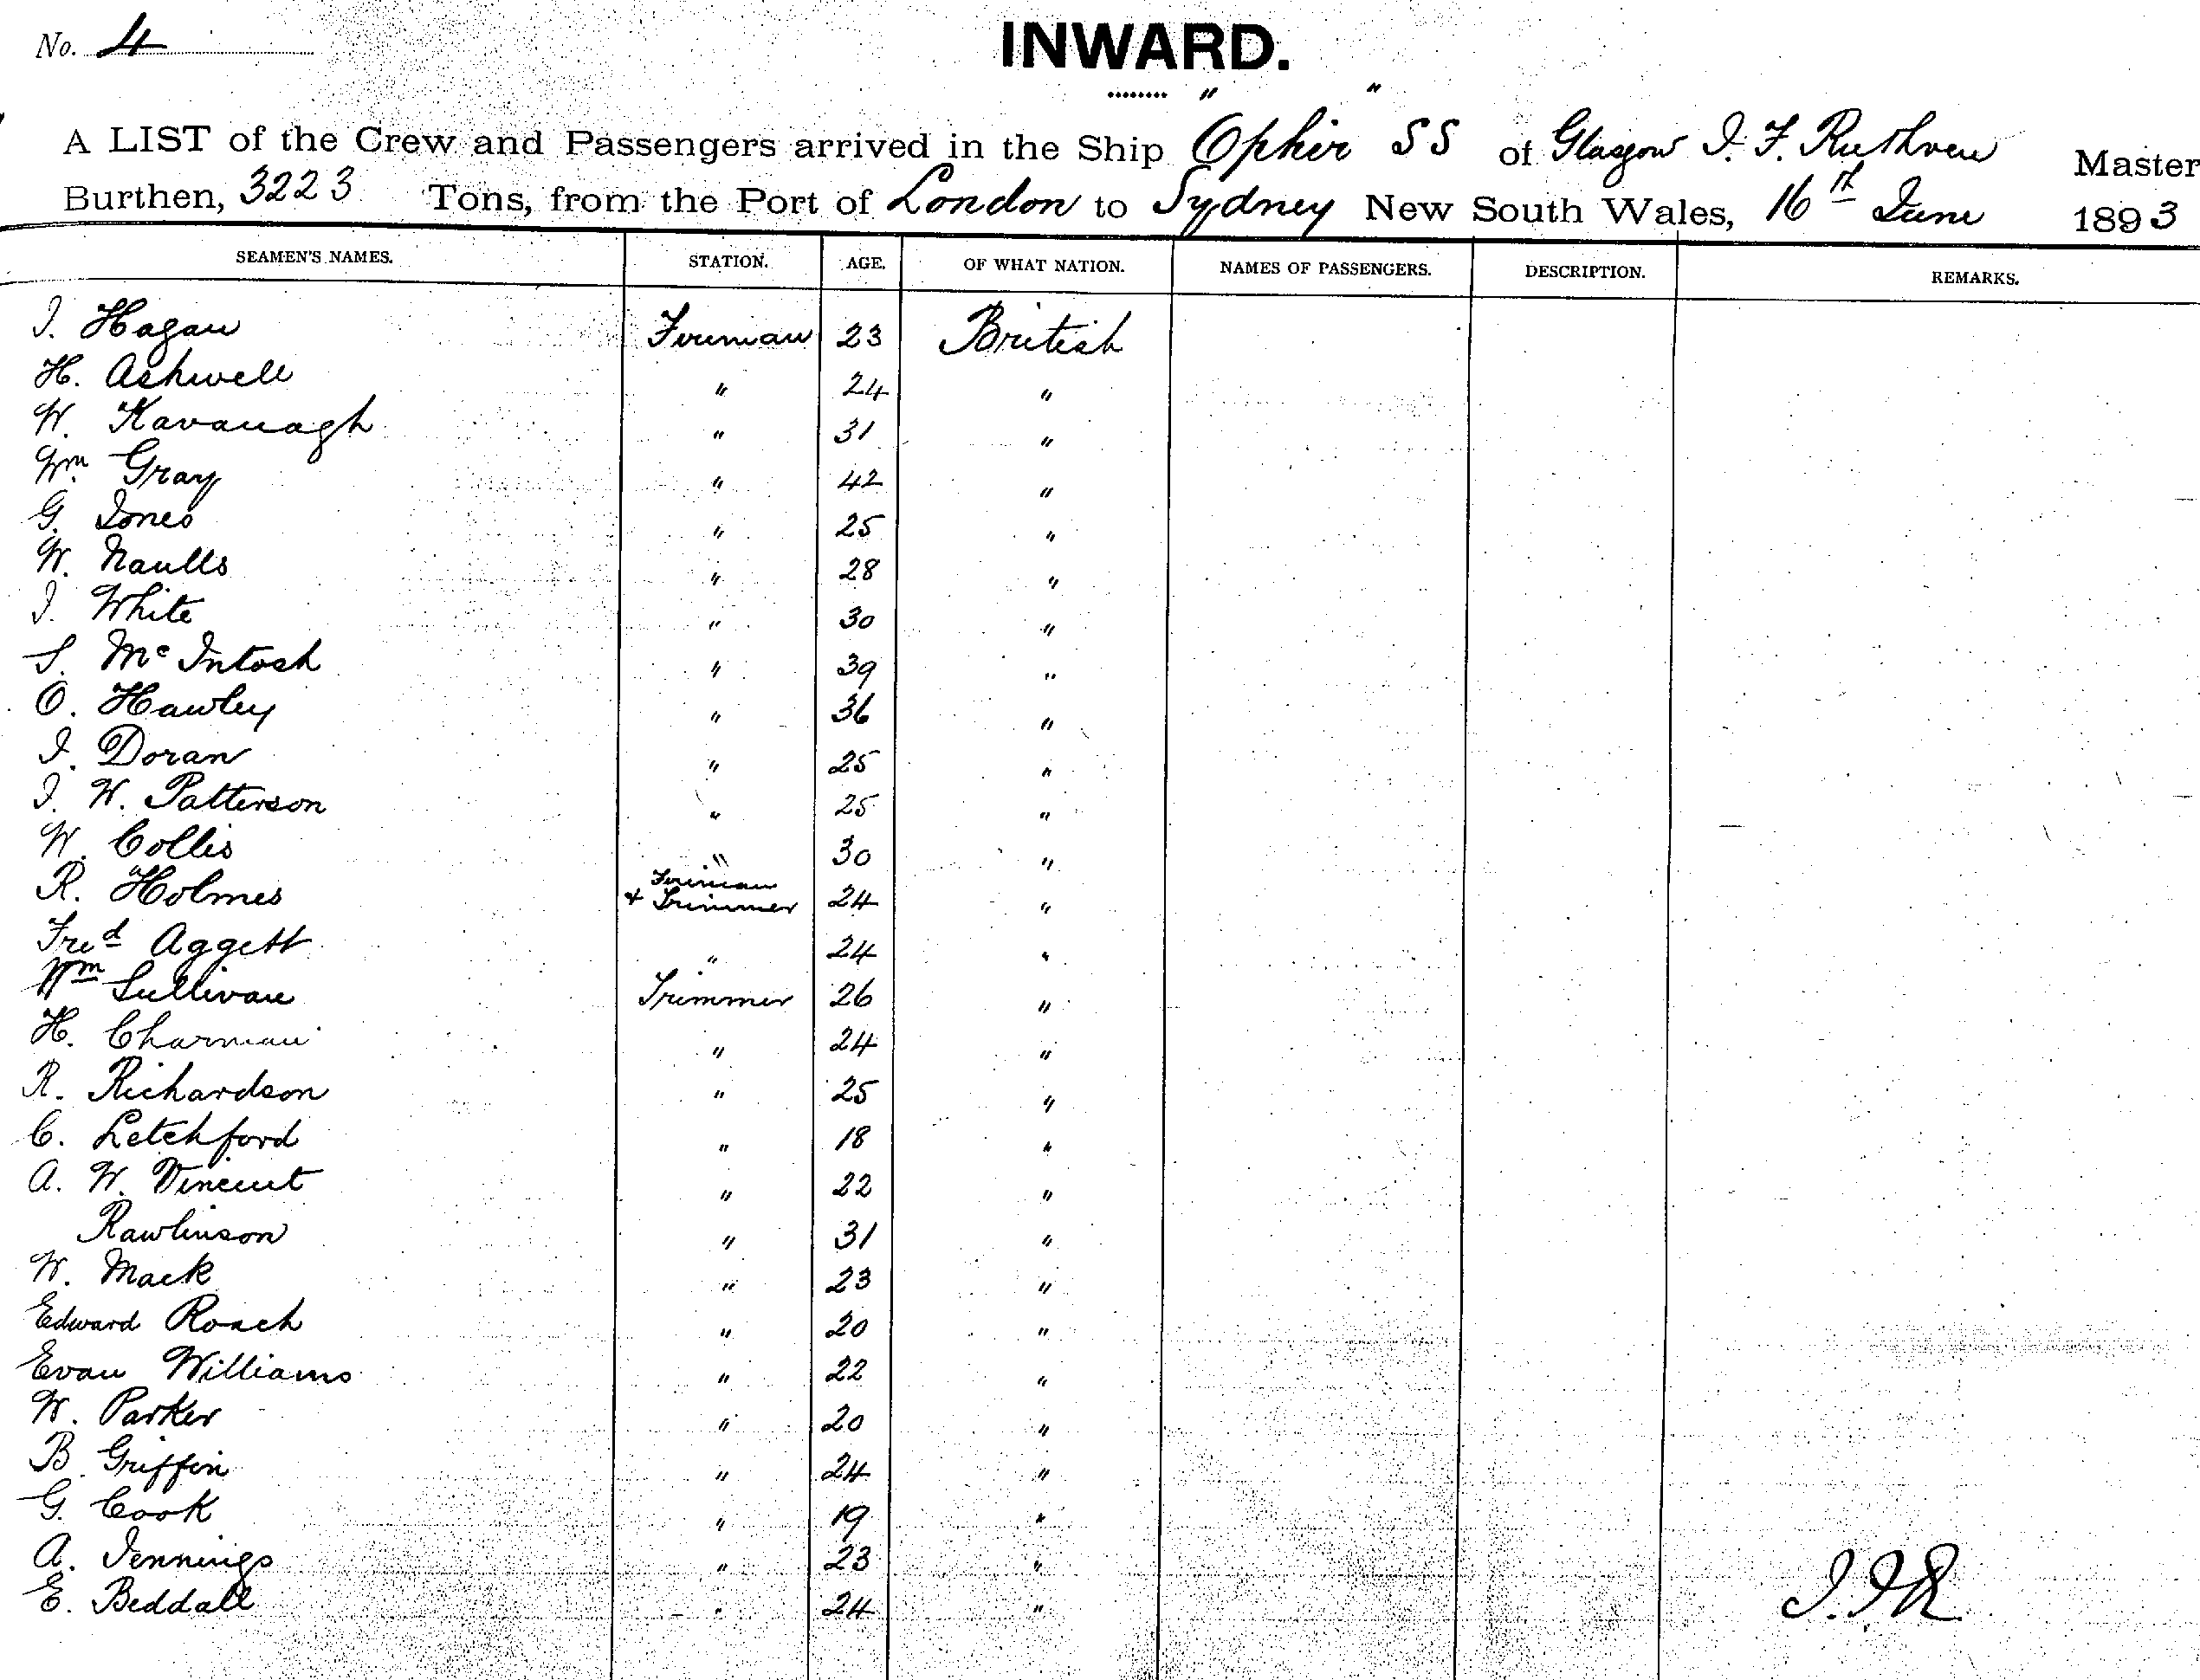 No. 4
INWARD.
" "
A LIST of the Crew and Passengers arrived in the Ship Ophir SS of Glasgow J. F. Ruthven Master
Burthen, 3223 Tons, from the Port of London to Sydney New South Wales, 16th June 1893
SEAMEN'S NAMES. STATION. AGE. OF WHAT NATION. NAMES OF PASSENGERS. DESCRIPTION. REMARKS.
J. Hagan Fireman 23 British
H. Ashwell " 24 "
W. Kavanagh " 31 "
Wm Gray " 42 "
G. Jones " 25 "
W. Naulls " 28 "
J. White " 30 "
S. McIntosh " 39 "
O. Hawley " 36 "
J. Doran " 25 "
J. W. Patterson " 25 "
W. Collis " 30 "
R. Holmes Fireman & Trimmer 24 "
Fred Aggett " 24 "
Wm Sullivan Trimmer 26 "
H. Charman " 24 "
R. Richardson " 25 "
C. Letchford " 18 "
A. W. Vincent " 22 "
Rawlinson " 31 "
W. Mack " 23 "
Edward Roach " 20 "
Evan Williams " 22 "
W. Parker " 20 "
B. Griffin " 24 "
G. Cook " 19 "
A. Jennings " 23 "
E. Beddall " 24 "
J.F.R